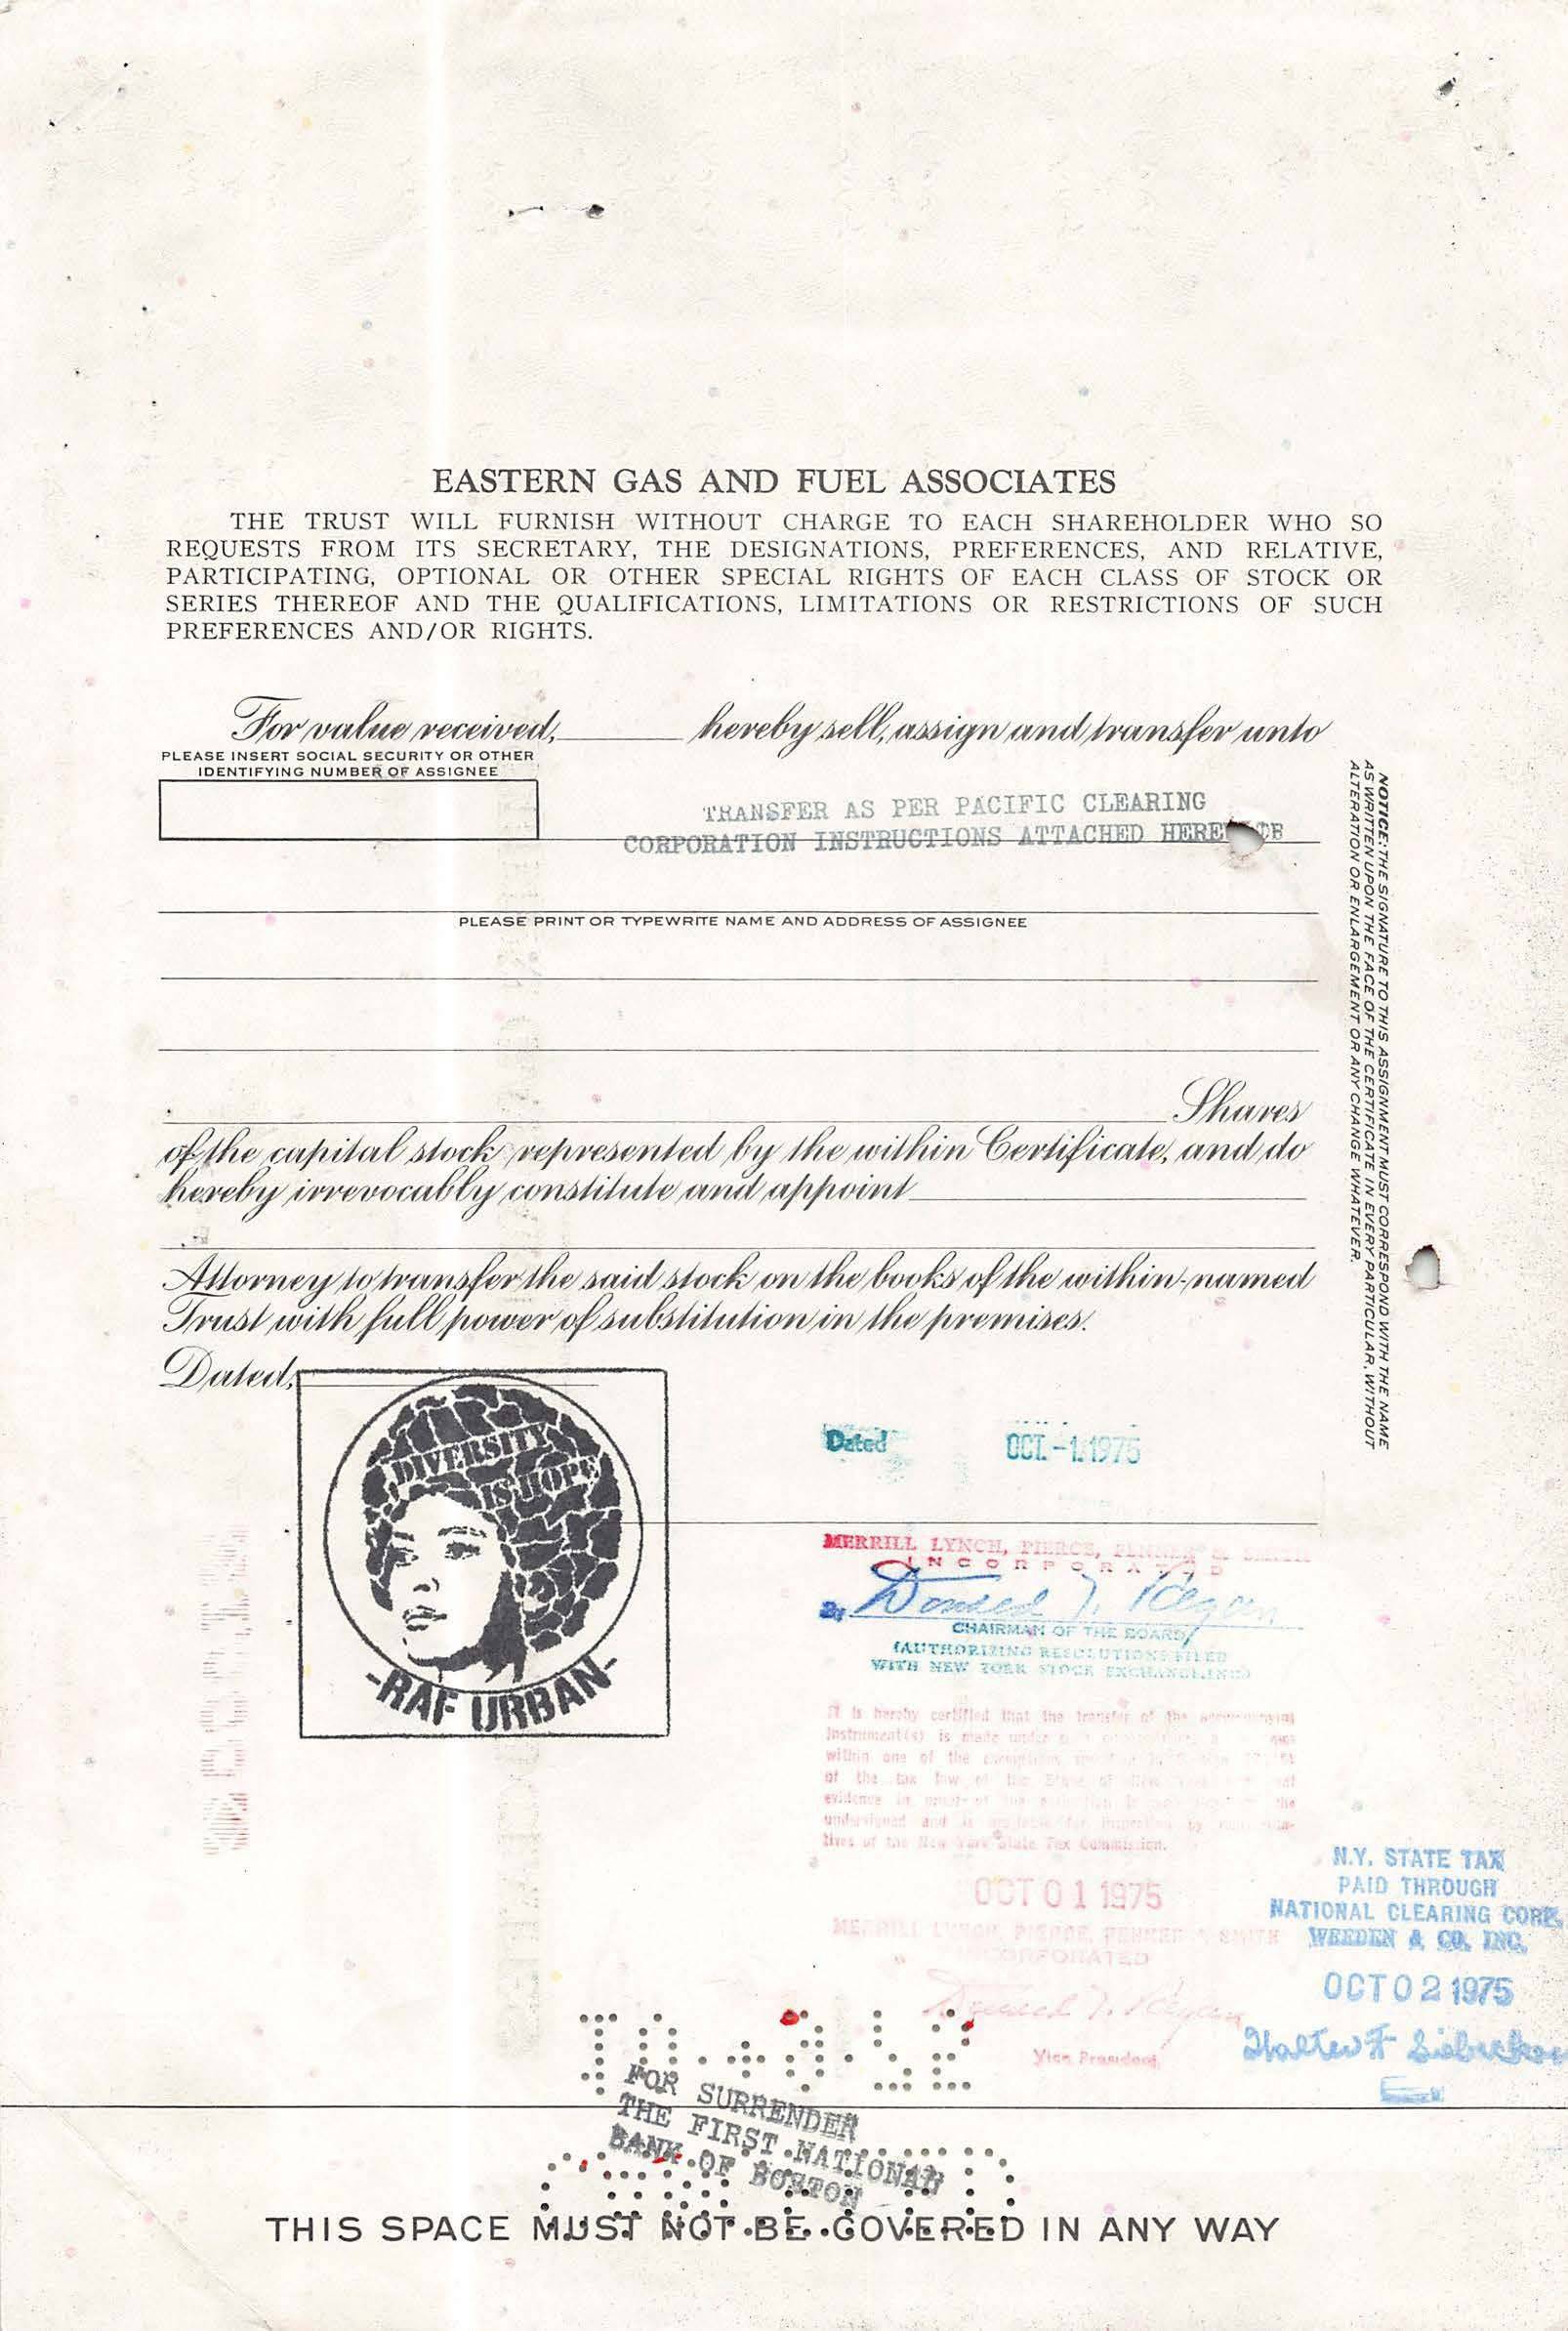 EASTERN GAS AND FUEL ASSOCIATES
THE TRUST WILL FURNISH WITHOUT CHARGE TO EACH SHAREHOLDER WHO SO
REQUESTS FROM ITS SECRETARY, THE DESIGNATIONS, PREFERENCES, AND RELATIVE,
PARTICIPATING, OPTIONAL OR OTHER SPECIAL RIGHTS OF EACH CLASS OF STOCK OR
SERIES THEREOF AND THE QUALIFICATIONS, LIMITATIONS OR RESTRICTIONS OF SUCH
PREFERENCES AND/OR RIGHTS.
For value received, hereby sell, assign and transfer unto
PLEASE INSERT SOCIAL SECURITY OR OTHER
IDENTIFYING NUMBER OF ASSIGNEE
TRANSFER AS PER PACIFIC CLEARING
CORPORATION INSTRUCTIONS ATTACHED
PLEASE PRINT OR TYPEWRITE NAME AND ADDRESS OF ASSIGNEE
Shares
of the capital stock represented by the within Certificate, and do
hereby irrevocably constitute and appoint
Attorney to transfer the said stock on the books of the within-named
Trust with full power of substitution in the premises.
Dated,
NOTICE: THE SIGNATURE TO THIS ASSIGNMENT MUST CORRESPOND WITH THE NAME
AS WRITTEN UPON THE FACE OF THE CERTIFICATE IN EVERY PARTICULAR, WITHOUT
ALTERATION OR ENLARGEMENT OR ANY CHANGE WHATEVER.
DIVERSITY
IS HOPE
-RAF URBAN-
Dated OCT. -1. 1975
MERRILL LYNCH, PIERCE, FENNER & SMITH
INCORPORATED
By Donald T. Regan
CHAIRMAN OF THE BOARD
(AUTHORIZING RESOLUTIONS FILED
WITH NEW YORK STOCK EXCHANGE, INC.)
It is hereby certified that the transfer of the accompanying
instrument(s) is made under
within one of the
of the tax law of the State of New
evidence
undersigned and is available for inspection by
tives of the New York State Tax Commission.
OCT 01 1975
MERRILL LYNCH, PIERCE, FENNER & SMITH
INCORPORATED
Donald T. Regan
Vice President
N.Y. STATE TAX
PAID THROUGH
NATIONAL CLEARING CORP.
WEEDEN & CO. INC.
OCT 02 1975
FOR SURRENDER
THE FIRST NATIONAL
BANK OF BOSTON
THIS SPACE MUST NOT BE COVERED IN ANY WAY